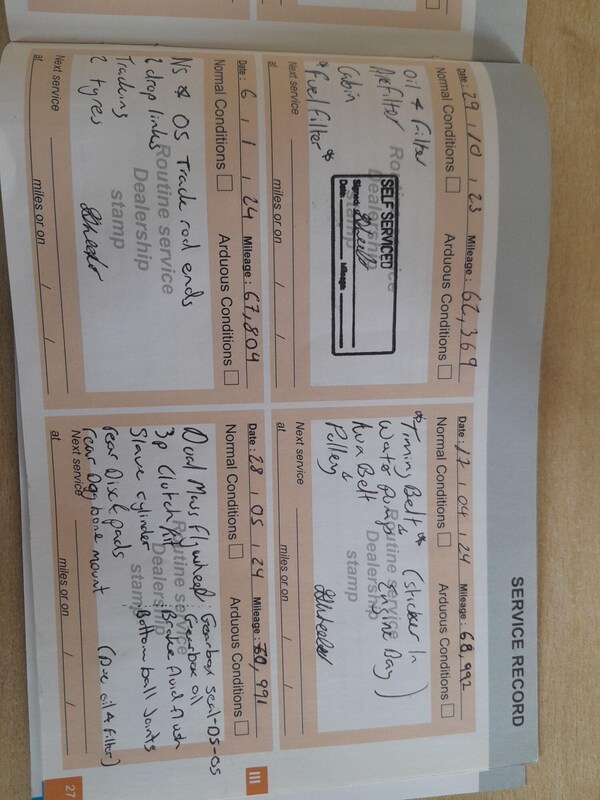 SERVICE RECORD
Date: 29 / 10 / 23 Mileage: 62,369
Normal Conditions Arduous Conditions
Oil & Filter
Air Filter
Cabin
* Fuel Filter *
Routine service
Dealership
stamp
SELF SERVICED
Signed
Date Mileage
Next service
at miles or on / /
Date: 17 / 04 / 24 Mileage: 68,992
Normal Conditions Arduous Conditions
* Timing Belt * (sticker In
Water Pump & Engine Bay)
Aux Belt
Pulleys
Routine service
Dealership
stamp
Next service
at miles or on / /
Date: 6 / 1 / 24 Mileage: 67,804
Normal Conditions Arduous Conditions
NS & OS Track rod ends
2 drop links
Tracking
2 tyres
Routine service
Dealership
stamp
Next service
at miles or on / /
Date: 28 / 05 / 24 Mileage: 70,991
Normal Conditions Arduous Conditions
Dual Mass flywheel : Gearbox seal - DS-OS
3p Clutch kit : Gearbox oil
Slave cylinder : Brake fluid flush
rear Disc & pads : Bottom ball joints
rear Dogbone mount (Due oil & filter)
Routine service
Dealership
stamp
Next service
at miles or on / /
III
27